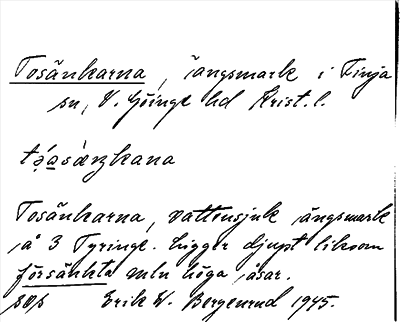 Tosänkarna, ängsmark i Finja
sn, V. Göinge hd Krist. l.
Tosänkarna, vattensjuk ängsmark
å 3 Tyringe. Ligger djupt liksom
försänkta mln höga åsar.
Erik W. Bergenrud 1945.